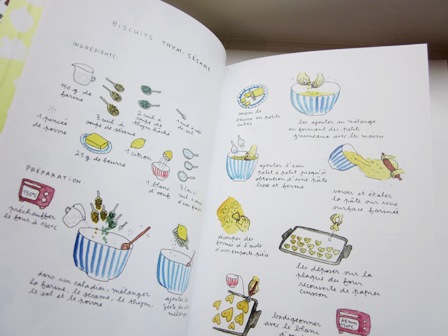 BISCUITS THYM-SÉSAME
INGRÉDIENTS
150 g. de
farine
3 cuil à
soupe de sésame
2 cuil à
soupe de
1 pincée
de poivre
25 g de beurre
1 citron
1 blanc
d'oeuf
PRÉPARATION
préchauffer
le four à
dans un saladier, mélanger
la farine, le sésame, le thym,
le sel et le poivre
ajouter le
couper le
beurre en petits
cubes
les ajouter au mélange
en formant des petits
grumeaux avec les mains
ajouter l'eau
petit à petit jusqu'à
obtention d'une pâte
lisse et ferme
verser et étaler
la pâte sur une
surface farinée
découper des
formes à l'aide
d'un emporte pièce
les déposer sur la
plaque du four
recouverte de papier
cuisson
badigeonner
avec le blanc